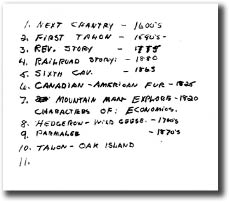 1. NEXT CHANTRY - 1600's
2. FIRST TALON - 1680's-
3. REV. STORY - 1775
4. RAILROAD STORY: - 1880
5. SIXTH CAV. - 1865
6. CANADIAN-AMERICAN FUR - 1825
7. MOUNTAIN MAN EXPLORE - 1820
CHARACTERS OF: ECONOMICS.
8. HEDGEROW - WILD GEESE. - 1740's
9. PARMALEE - 1870's
10. TALON - OAK ISLAND
11.